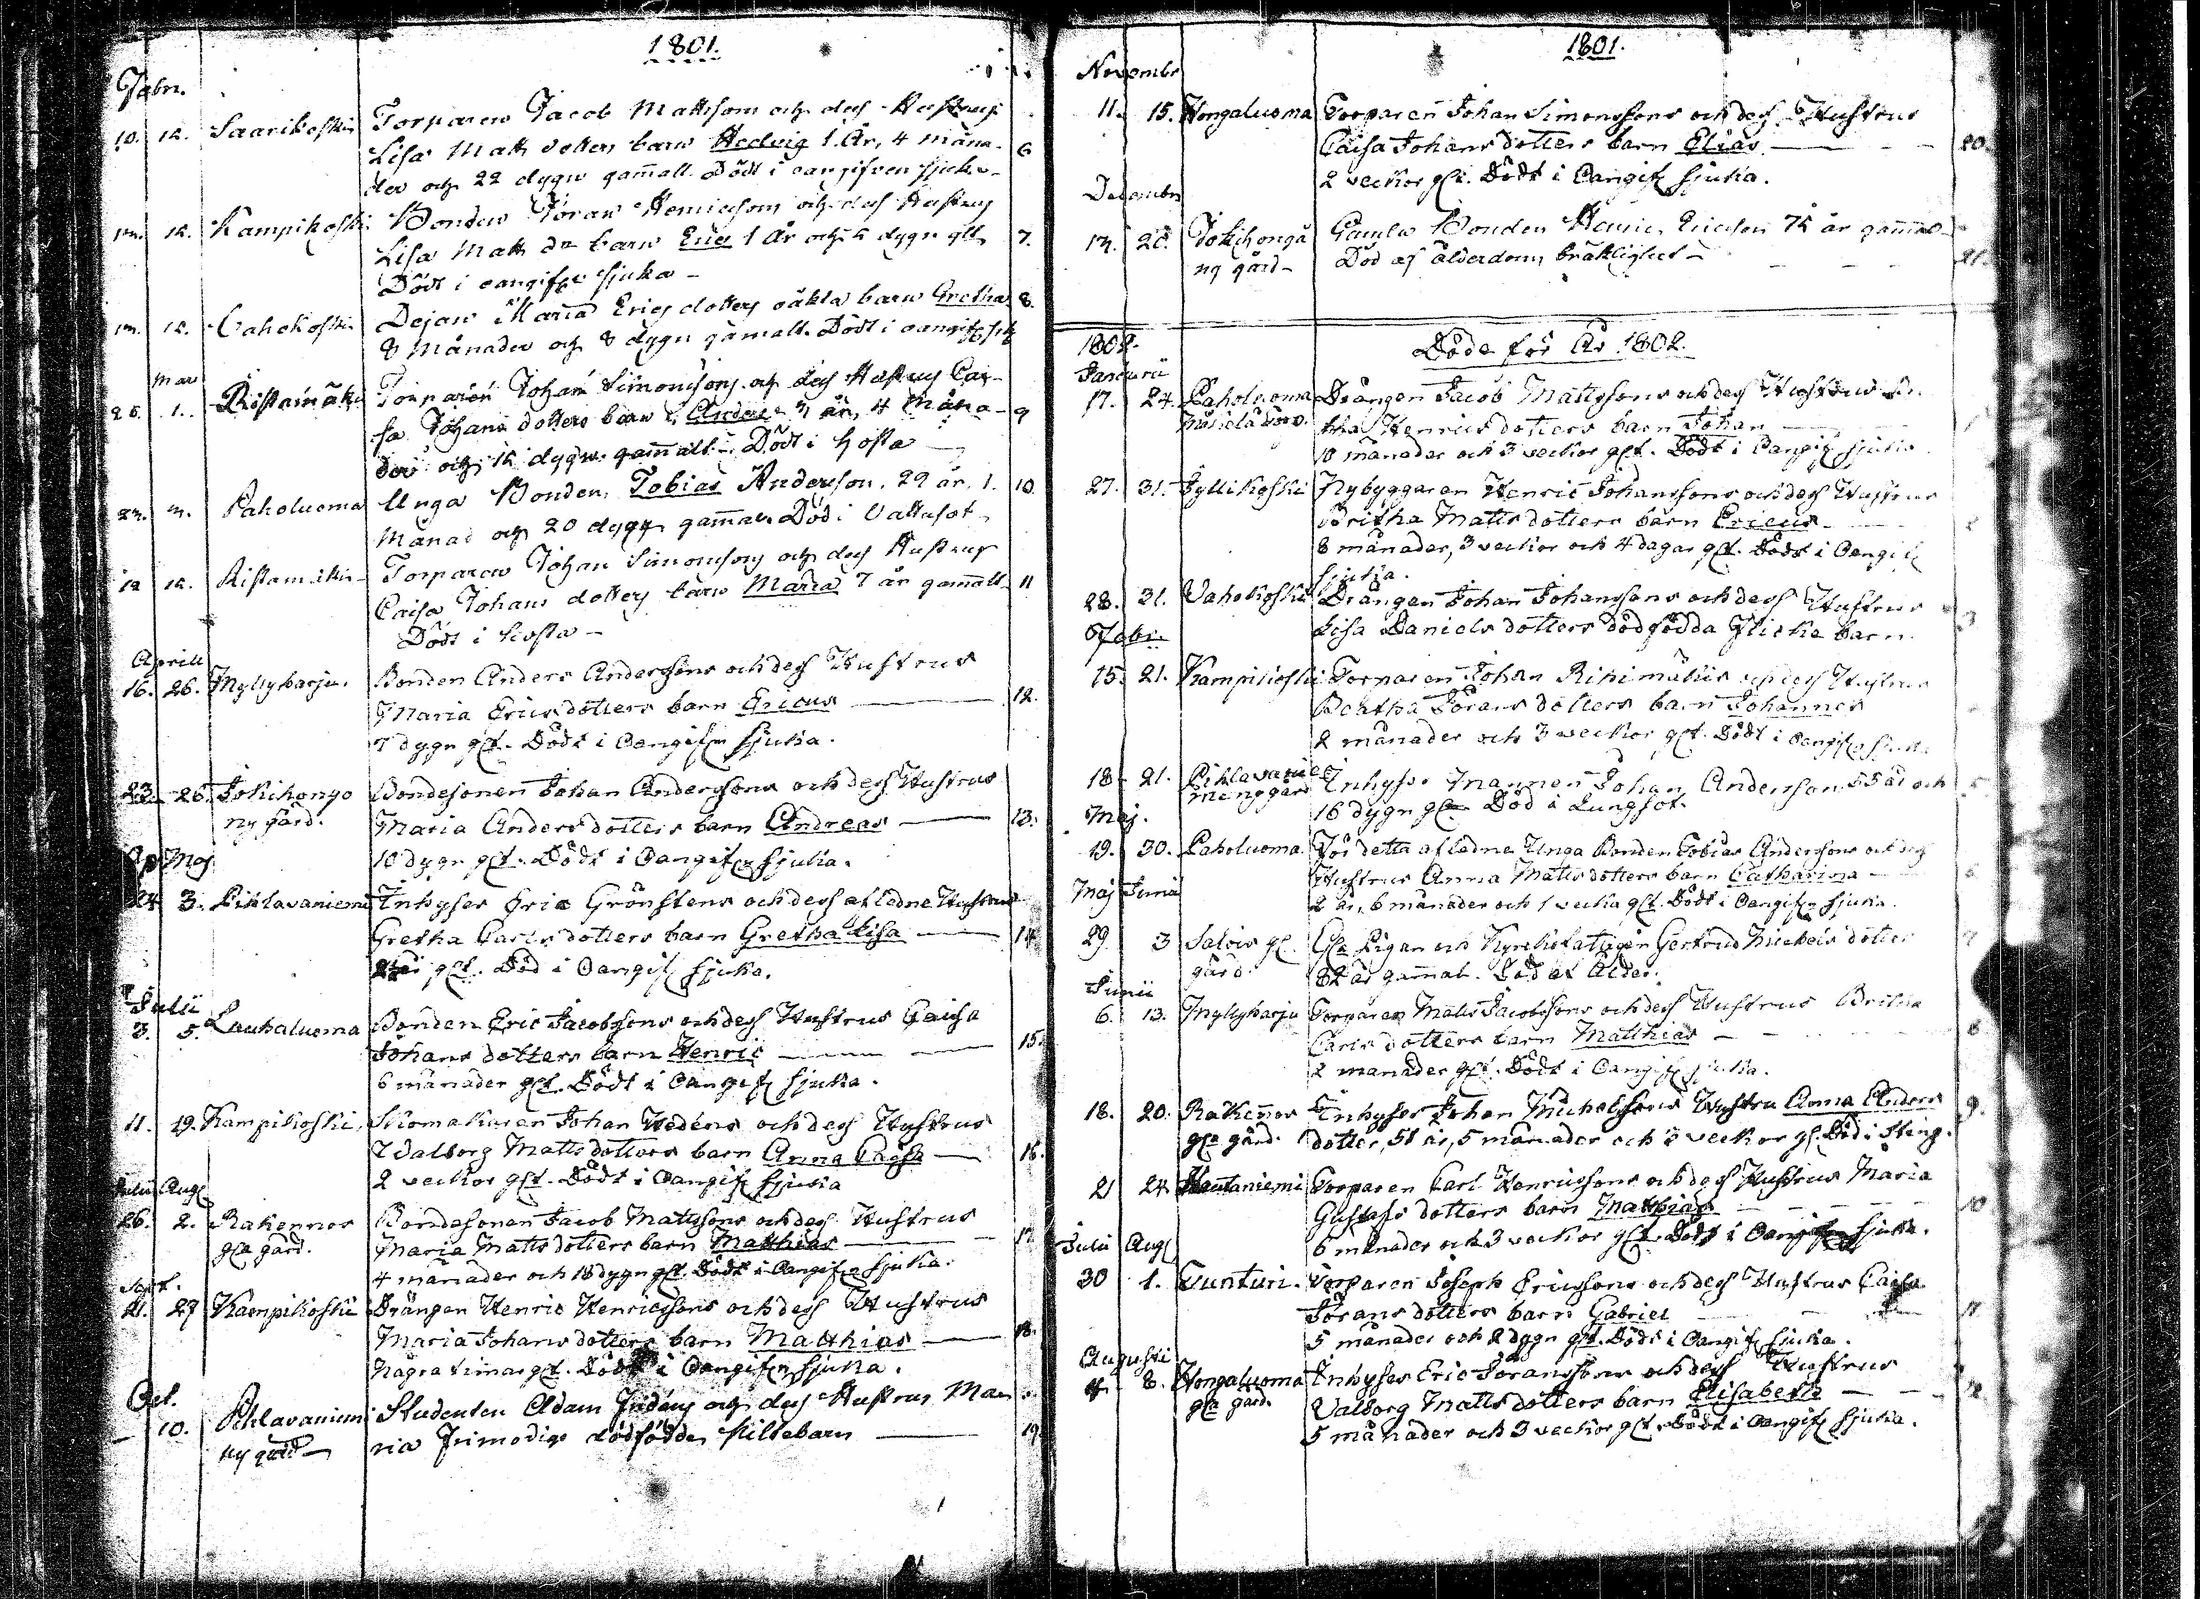 1801.
Febr.
10. 12. Saarikoski Torparen Jacob Mattsson och dess Hustrus
Lisa Matts dotters barn Hedvig 1 År, 4 måna- 6
der och 22 dygn gamalt. Dödt i oangifven sjuka
12. Kampikoski Bonden Jöran Henricsons och dess Hustrus
Lisa Matts dr barn Eric 1 År och dygn glt 7.
Dödt i oangifn sjuka
12. Vahokoski Dejan Maria Erics dotters oäkta barn Gretha 8.
8 Månader och 8 dygn gamalt. Dödt i oangif sjk
Mars
26. 1. Ristamäki Torparen Johan Simonsons och dess Hustrus Cai-
sa Johans dotters barn Anders år, 4 Måna- 9
der och dygn gamalt. Dödt i hosta
Paholuoma Unga Bonden Tobias Andersson. 29 år, 1. 10
Månad och 20 dygn gamal. Död i Vattusot
12. Ristamäki Torparen Johan Simonsons och dess Hustrus
Caisa Johans dotters barn Maria 7 år gamalt 11
Dödt i hosta
Aprill
16. 26. Myllyharju. Bonden Anders Anderssons och dess Hustrus
Maria Erics dotters barn Ericus 12.
7 dygn glt. Dödt i Oangifn sjuka.
23. 26. Jokihongo Bondesonen Johan Anderssons och dess Hustrus
ny gård. Maria Anders dotters barn Andreas 13.
10 dygn glt. Dödt i Oangifn sjuka.
Ap Maj
24 3. Pihlavaniemi Inhyses Eric Grönstens och dess afledne Hustrus
Gretha Carls dotters barn Gretha Lisa 14
år glt. Död i Oangif sjuka.
Julii
3. 5. Lauhaluoma Bonden Eric Jacobssons och dess Hustrus Caisa
Johans dotters barn Henric 15.
6 månader glt. Dödt i Oangif sjuka.
11. 19. Kampikoski Skomakaren Johan Hedéns och dess Hustrus
Walborg Matts dotters barn Anna Caisa 16.
2 veckor glt. Dödt i Oangif sjuka
Julii Aug
26. 2. Rakennos Bondesonen Jacob Mattssons och dess Hustrus
gla gård. Maria Matts dotters barn Matthias 17
4 månader och 18 dygn glt. Dödt i Oangifn sjuka.
Sept.
21. 27 Kampikoski Drängen Henric Henricssons och dess Hustrus
Maria Johans dotters barn Matthias 18.
Några timar glt. Dödt i Oangifn sjuka.
Oct.
10. Pihlavaniemi Studenten Adam och dess Hustrus Ma-
ny gård ria Frimodigs dödfödda Piltebarn 19
1801.
Novembr
11. 15. Hongaluoma Torparen Johan Simonssons och dess Hustrus
Caisa Johans dotters barn Elias 20.
2 veckor glt. Dödt i Oangif sjuka.
Decembr
20. Jokihongo Gamla Bonden Henric Ericsson år gammal
ny gård Död af ålderdoms bräklighet 21.
1802. Döde för År 1802.
Januarii
17. 24. Paholuoma Drängen Jacob Mattssons och dess Hustrus
tha Henrics dotters barn Johan
10 månader och 3 veckor glt. Dödt i Oangif sjuka
27. 31. Jyllikoski Nybyggaren Henric Johanssons och dess Hustrus
Britha Matts dotters barn Ericus 2
8 månader, 3 veckor och 4 dagar glt. Dödt i Oangif
sjuka.
28. 31. Vahokoski Drängen Johan Johanssons och dess Hustrus
Febr. Lisa Daniels dotters dödfödda Flicke barn. 3
15. 21. Kampikoski Torparen Johan Rihimäkis och dess Hustrus
Beatha Jörans dotters barn Johannes
2 månader och 3 veckor glt. Dödt i Oangif sjuka
18. 21. Pihlavanie Inhyses Mannen Johan Andersson 55 år och 5
mi ny gård 16 dygn gl. Död i Lungsot.
Maj.
19. 30. Paholuoma För detta afledne Unga Bonden Tobias Anderssons och dess
Hustrus Anna Matts dotters barn Catharina 6
Maj Junii 2 år, 6 månader och 1 vecka glt. Dödt i Oangifn sjuka.
29. 3 Salois gl. Pigan och Kyrkiofattigen Gertrud Michels dotter 7
gård. 82 år gammal. Död af Ålder.
Junii
6. 13. Myllyharju Torparen Matts Jacobssons och dess Hustrus Britha
Carls dotters barn Matthias 8
2 månader glt. Dödt i Oangif sjuka.
18. 20. Rakennos Inhyses Johan Michelssons Hustru Anna Anders 9.
gla gård. dotter, 51 år, 5 månader och veckor gl. Död i Sting.
21 24. Hautaniemi Torparen Carl Henricssons och dess Hustrus Maria
Gustafs dotters barn Matthias 10
6 månader och 3 veckor glt. Dödt i Oangifn sjuka.
Julii Aug
30 1. Tunturi. Torparen Joseph Ericssons och dess Hustrus Caisa
Jörans dotters barn Gabriel 11
5 månader och 2 dygn glt. Dödt i Oangif sjuka.
Augusti
4. 8. Hongaluoma Inhyses Eric Joranssons och dess Hustrus
gla gård. Valborg Matts dotters barn Elisabeth 12
5 månader och 3 veckor glt. Dödt i Oangif sjuka.